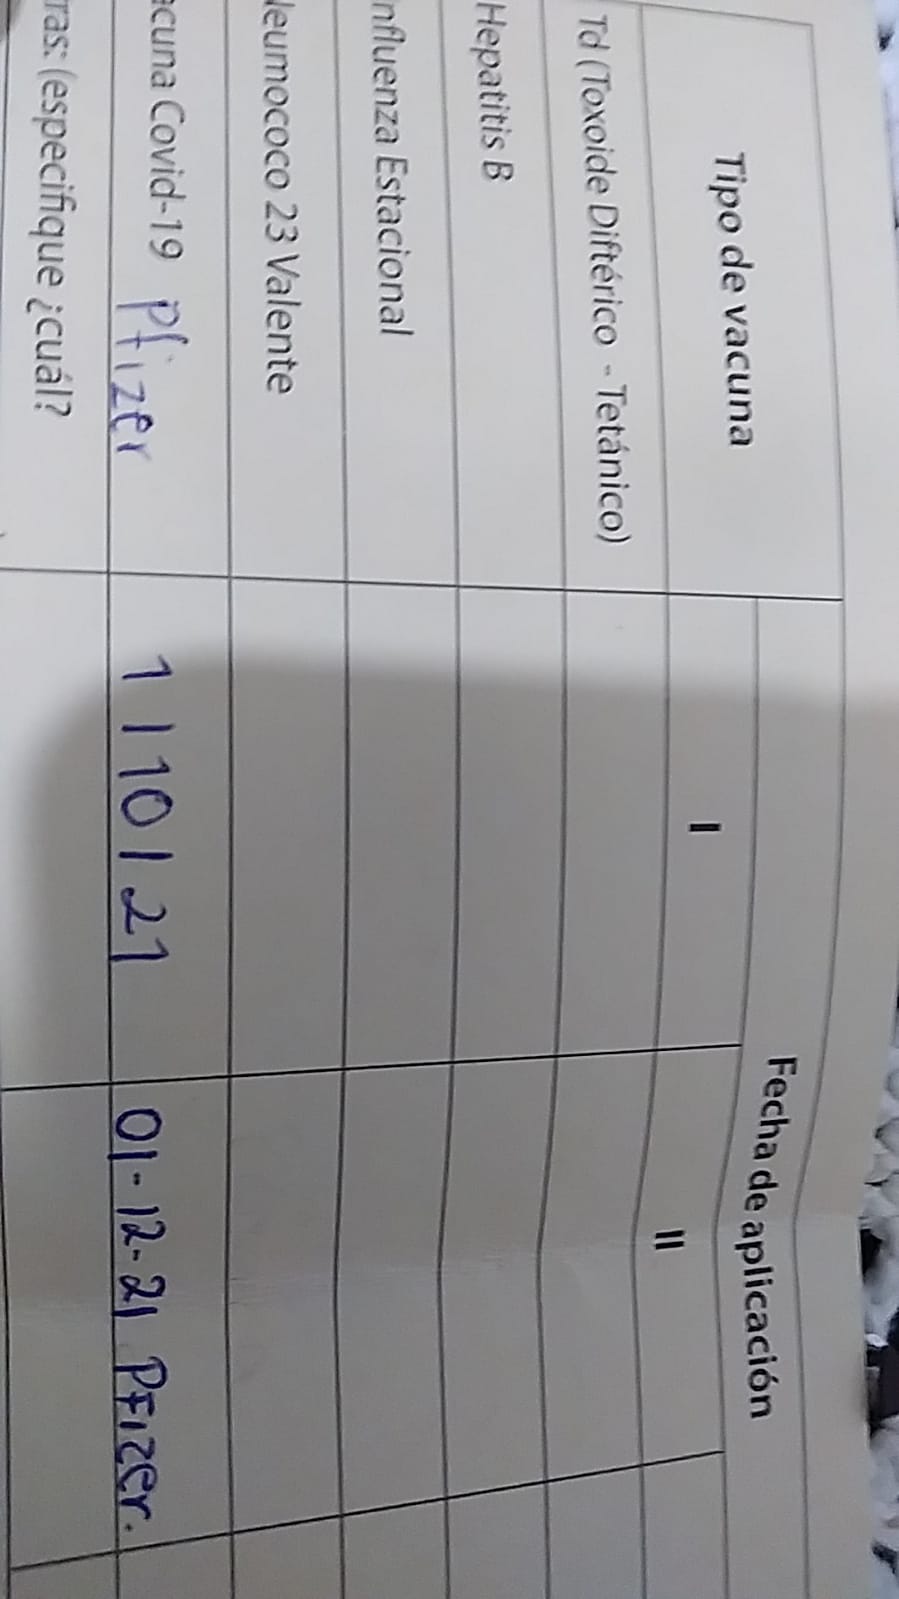 Tipo de vacuna
Fecha de aplicación
I
II
Td (Toxoide Diftérico - Tetánico)
Hepatitis B
nfluenza Estacional
eumococo 23 Valente
acuna Covid-19 Pfizer
1/10/21
01-12-21 Pfizer.
ras: (especifique ¿cuál?